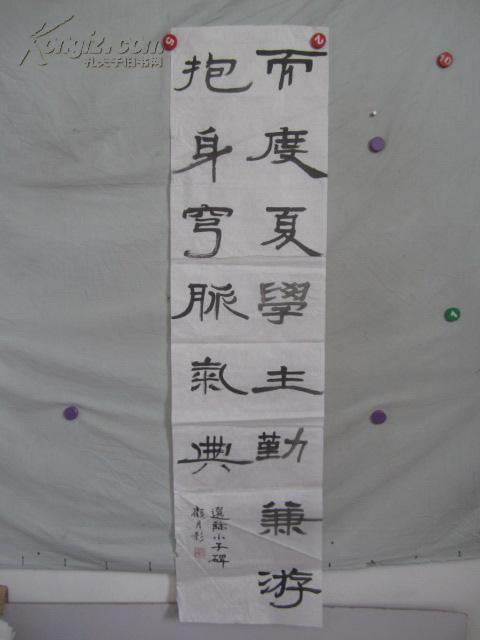 而度夏學主勤兼游
抱身穹脈氣典
選餘小子碑
月影
Kongfz.com
孔夫子旧书网
5
2
10